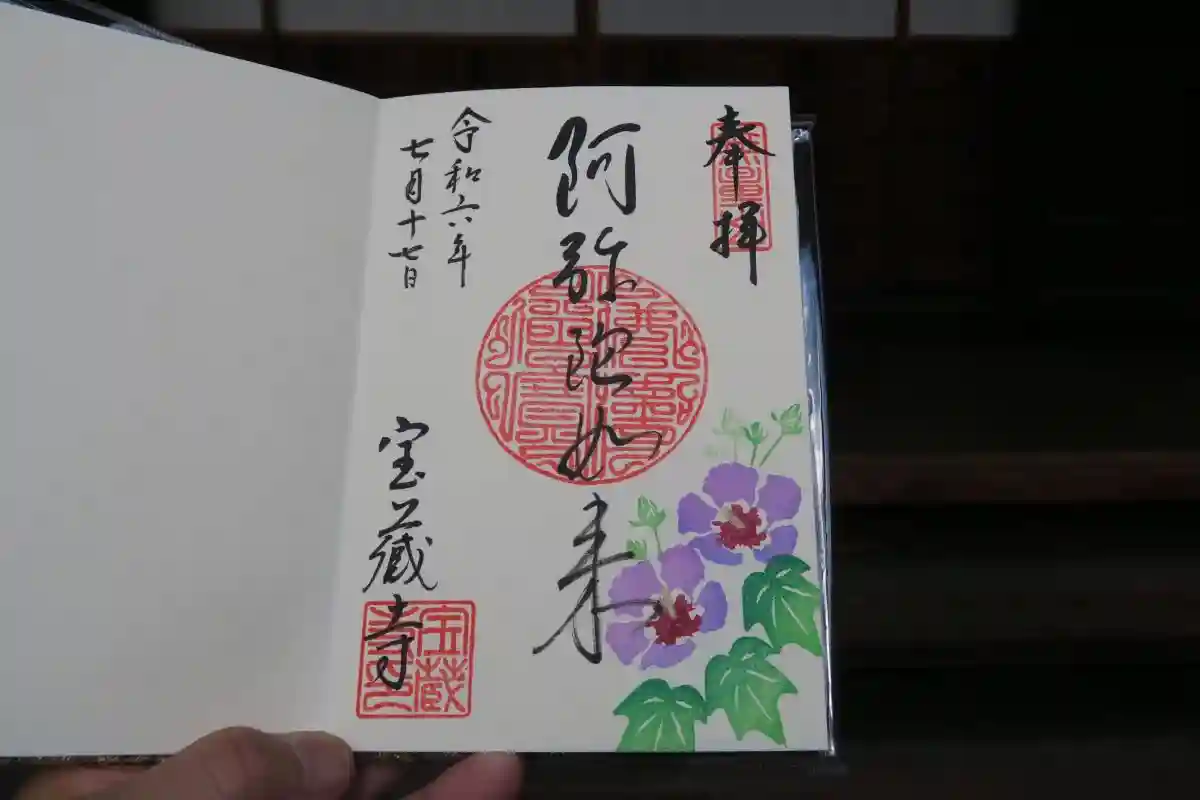 奉拝
阿弥陀如来
令和六年
七月十七日
宝蔵寺
宝蔵
寺印